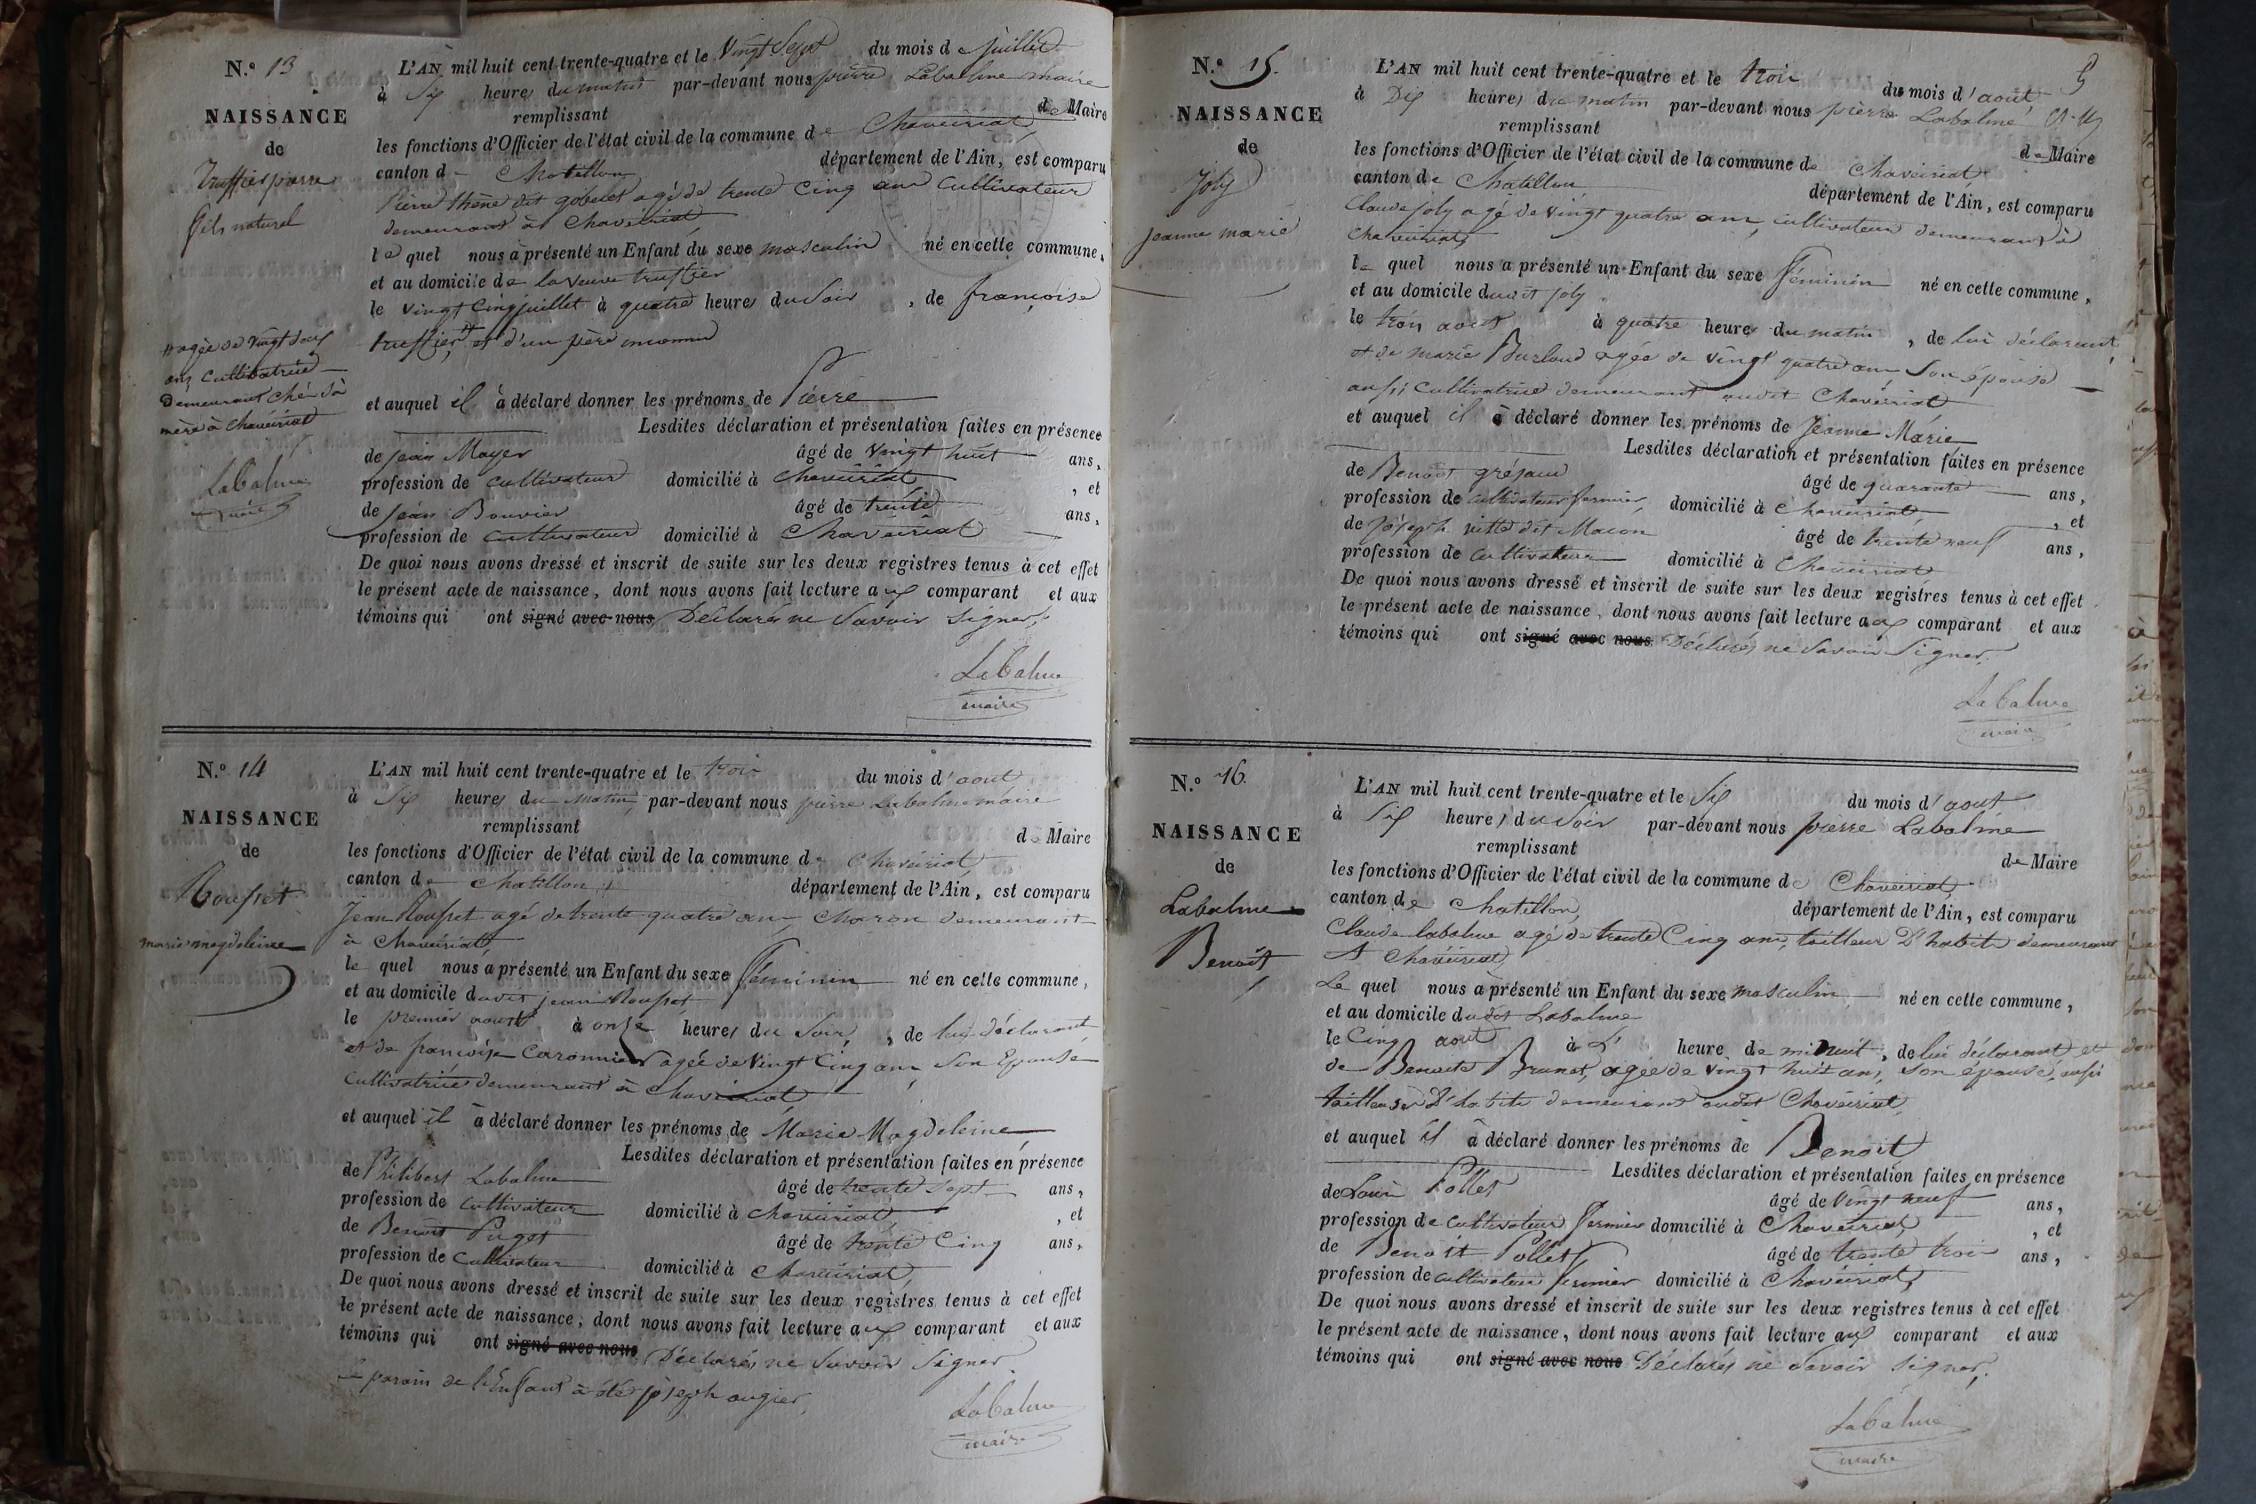 N.º 13
NAISSANCE
de
truffier pierre
fils naturel
L'AN mil huit cent trente-quatre et le vingt Sept du mois de juillet
à Six heures du matin par-devant nous pierre Labalme maire
remplissant de Maire
les fonctions d'Officier de l'état civil de la commune de Chaveiriat
canton de Chatillon département de l'Ain, est comparu
Pierre thène dit gobelet agé de trente Cinq ans Cultivateur
demeurant à Chaveiriat
le quel nous a présenté un Enfant du sexe masculin né en cette commune,
et au domicile de la veuve truffier
le vingt Cinq juillet à quatre heures du Soir, de françoise
truffier # et d'un père inconnu
# agée de vingt
ans Cultivatrice
demeurant ché Sa
mère à Chaveiriat
Labalme
maire
et auquel il a déclaré donner les prénoms de Pierre
Lesdites déclaration et présentation faites en présence
de jean Moyer âgé de vingt huit ans,
profession de cultivateur domicilié à Chaveiriat, et
de jean Bouvier âgé de trente ans,
profession de cultivateur domicilié à Chaveiriat
De quoi nous avons dressé et inscrit de suite sur les deux registres tenus à cet effet
le présent acte de naissance, dont nous avons fait lecture aux comparant et aux
témoins qui ont signé avec nous Déclarés ne Savoir Signer,
Labalme
maire
N.º 14
NAISSANCE
de
Rousset
marie magdeleine
L'AN mil huit cent trente-quatre et le trois du mois d'aout
à Six heures du matin, par-devant nous pierre Labalme maire
remplissant de Maire
les fonctions d'Officier de l'état civil de la commune de Chaveiriat,
canton de Chatillon, département de l'Ain, est comparu
Jean Rousset agé de trente quatre ans, Charon demeurant
à Chaveiriat
le quel nous a présenté un Enfant du sexe féminin né en cette commune,
et au domicile dudit jean Rousset
le premier aoust à onze heures du Soir, de lui déclarant
et de françoise Caronnier agée de vingt Cinq ans Son Epouse
Cultivatrice demeurant à Chaveiriat
et auquel il a déclaré donner les prénoms de Marie Magdeleine
Lesdites déclaration et présentation faites en présence
de Philibert Labalme âgé de trente Sept ans,
profession de cultivateur domicilié à Chaveiriat, et
de Benoit Puget âgé de trente Cinq ans,
profession de Cultivateur domicilié à Chaveiriat,
De quoi nous avons dressé et inscrit de suite sur les deux registres tenus à cet effet
le présent acte de naissance, dont nous avons fait lecture aux comparant et aux
témoins qui ont signé avec nous Déclarés ne Savoir Signer
Le parain de l'Enfant à été joseph augier,
Labalme
maire
5
N.º 15.
NAISSANCE
de
Joly
jeanne marie
L'AN mil huit cent trente-quatre et le trois du mois d'août
à Dix heures du matin par-devant nous pierre Labalme
remplissant de Maire
les fonctions d'Officier de l'état civil de la commune de Chaveiriat
canton de Chatillon département de l'Ain, est comparu
Claude joly agé de vingt quatre ans, cultivateur demeurant à
Chaveiriat
le quel nous a présenté un Enfant du sexe féminin né en cette commune,
et au domicile dudit joly
le trois aout à quatre heures du matin, de lui déclarant
et de marie Burloud agée de vingt quatre ans Son épouse
aussi Cultivatrice demeurant audit Chaveiriat
et auquel il a déclaré donner les prénoms de Jeanne Marie
Lesdites déclaration et présentation faites en présence
de Benoit gréjaud âgé de quarante ans,
profession de cultivateur fermier, domicilié à Chaveiriat, et
de joseph vitte dit Macon âgé de trente neuf ans,
profession de Cultivateur domicilié à Chaveiriat
De quoi nous avons dressé et inscrit de suite sur les deux registres tenus à cet effet
le présent acte de naissance, dont nous avons fait lecture aux comparant et aux
témoins qui ont signé avec nous Déclarés ne Savoir Signer.
Labalme
maire
N.º 16.
NAISSANCE
de
Labalme
Benoit
L'AN mil huit cent trente-quatre et le Six du mois d'aout
à Six heures du Soir par-devant nous pierre Labalme
remplissant de Maire
les fonctions d'Officier de l'état civil de la commune de Chaveiriat
canton de Chatillon, département de l'Ain, est comparu
Claude labalme agé de trente Cinq ans, tailleur D'habits demeurant
A Chaveiriat
Le quel nous a présenté un Enfant du sexe masculin né en cette commune,
et au domicile dudit Labalme
le Cinq aout à L' heure de minuit, de lui déclarant et
de Benoite Brunet, agée de vingt huit ans, Son épouse, aussi
tailleuse D'habits demeurant audit Chaveiriat,
et auquel il a déclaré donner les prénoms de Benoit
Lesdites déclaration et présentation faites en présence
de Louis Pollet âgé de vingt neuf ans,
profession de cultivateur fermier domicilié à Chaveiriat, et
de Benoit Pollet âgé de trente trois ans,
profession de cultivateur fermier domicilié à Chaveiriat,
De quoi nous avons dressé et inscrit de suite sur les deux registres tenus à cet effet
le présent acte de naissance, dont nous avons fait lecture aux comparant et aux
témoins qui ont signé avec nous Déclarés ne Savoir Signer,
Labalme
maire